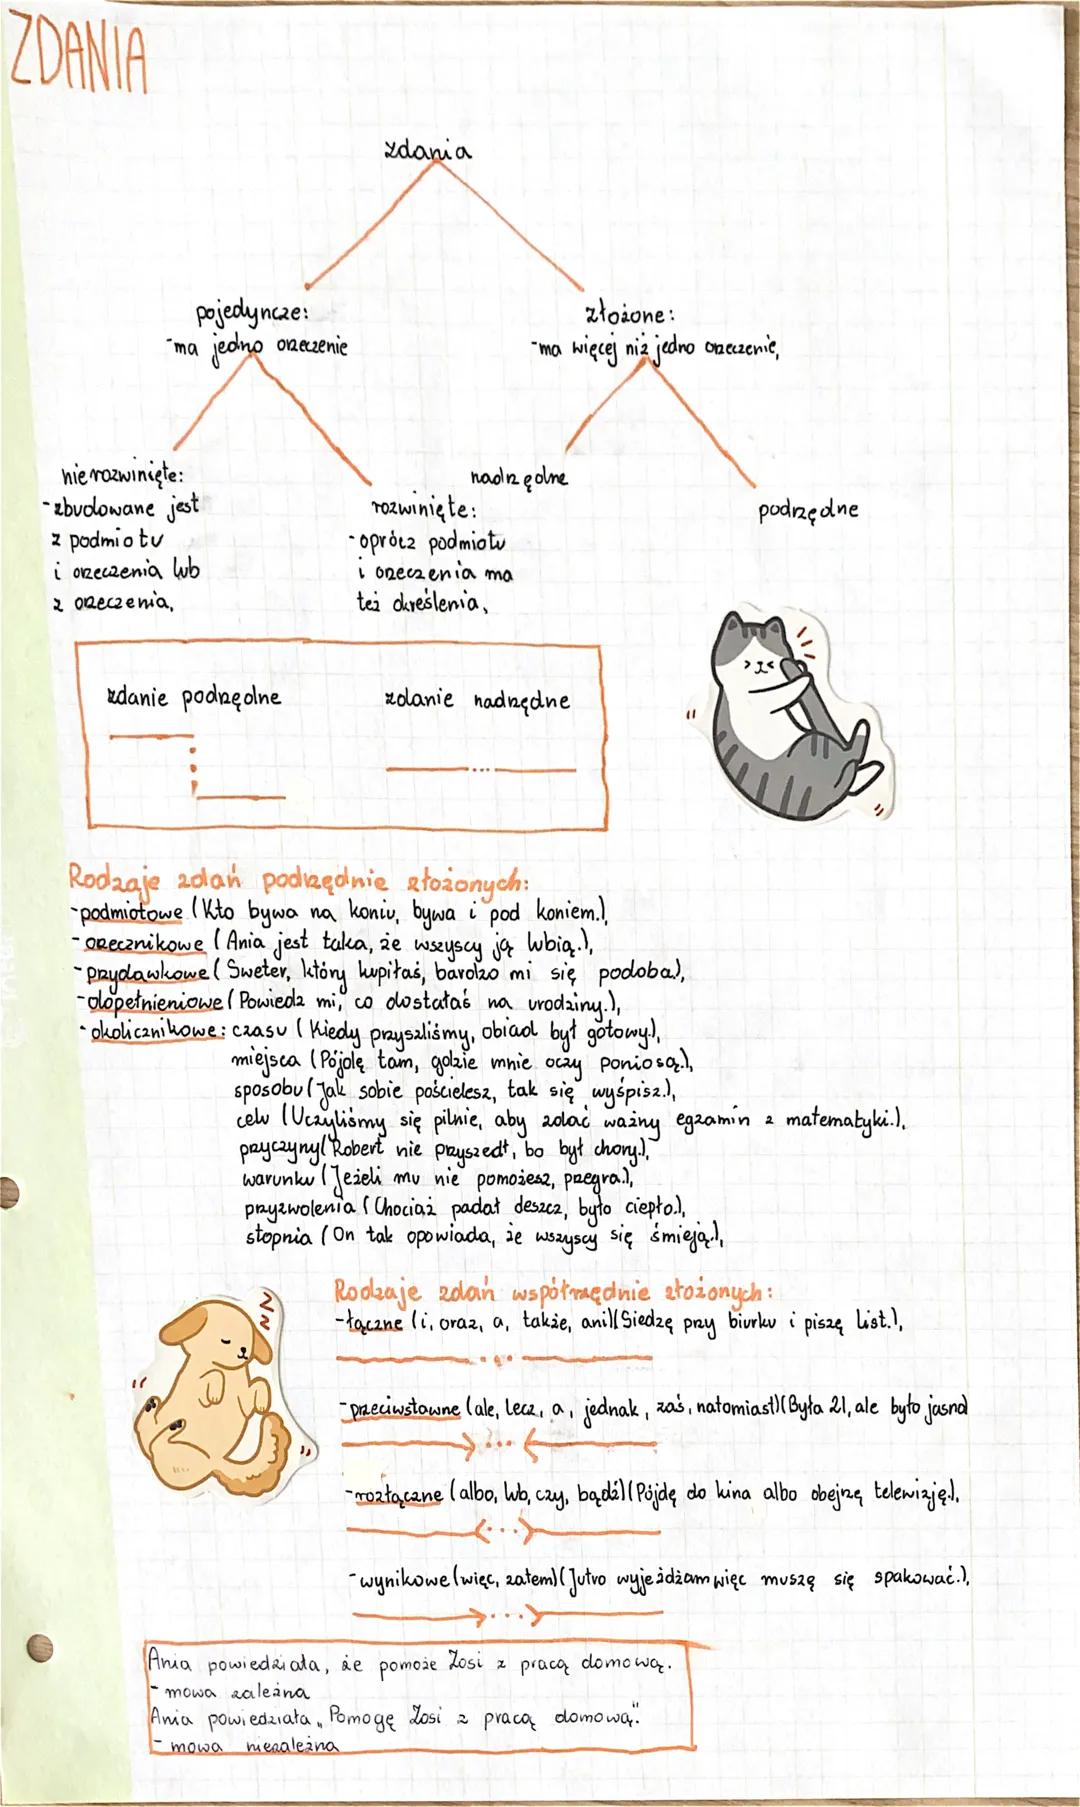 ZDANIA
zdania
pojedyncze:
-ma jedno orzeczenie
złożone:
-ma więcej niż jedno orzeczenie,
nierozwinięte:
-zbudowane jest
z podmiotu
i orzeczenia lub
z orzeczenia,
rozwinięte:
-oprócz podmiotu
i orzeczenia ma
też określenia,
nadrzędne
podrzędne
zdanie podrzędne
zdanie nadrzędne
Rodzaje zdań podrzędnie złożonych:
-podmiotowe (Kto bywa na koniu, bywa i pod koniem.),
-orzecznikowe (Ania jest taka, że wszyscy ją lubią.),
-przydawkowe (Sweter, który kupiłaś, bardzo mi się podoba.),
-dopełnieniowe (Powiedz mi, co dostałaś na urodziny.),
-okolicznikowe: czasu (Kiedy przyszliśmy, obiad był gotowy.),
miejsca (Pójdę tam, gdzie mnie oczy poniosą.),
sposobu (Jak sobie pościelesz, tak się wyśpisz.),
celu (Uczyliśmy się pilnie, aby zdać ważny egzamin z matematyki.),
przyczyny (Robert nie przyszedł, bo był chory.),
warunku (Jeżeli mu nie pomożesz, przegra.),
przyzwolenia (Chociaż padał deszcz, było ciepło.),
stopnia (On tak opowiada, że wszyscy się śmieją.),
Rodzaje zdań współrzędnie złożonych:
-łączne (i, oraz, a, także, ani)(Siedzę przy biurku i piszę list.),
-przeciwstawne (ale, lecz, a, jednak, zaś, natomiast)(Była 21, ale było jasno)
-rozłączne (albo, lub, czy, bądź)(Pójdę do kina albo obejrzę telewizję.),
-wynikowe (więc, zatem)(Jutro wyjeżdżam więc muszę się spakować.),
Ania powiedziała, że pomoże Zosi z pracą domową.
- mowa zależna
Ania powiedziała „Pomogę Zosi z pracą domową."
- mowa niezależna